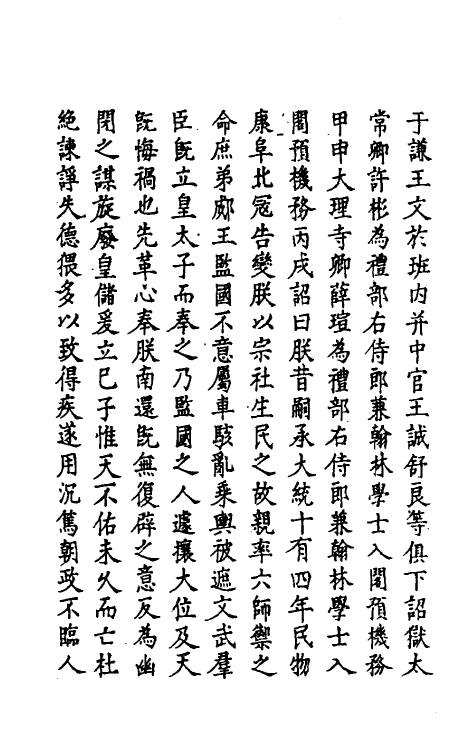 于謙王文於班内并中官王誠舒良等俱下詔獄太
常卿許彬為禮部右侍郎兼翰林學士入閣預機務
甲申大理寺卿薛瑄為禮部右侍郎兼翰林學士入
閣預機務丙戌詔曰朕昔嗣承大統十有四年民物
康阜北冦告變朕以宗社生民之故親率六師禦之
命庶弟郕王監國不意屬車駭亂乘輿被遮文武羣
臣旣立皇太子而奉之乃監國之人遽攘大位及天
旣悔禍也先革心奉朕南還旣無復辟之意反為幽
閉之謀旋廢皇儲爰立己子惟天不佑未久而亡杜
絶諫諍失德猥多以致得疾遂用沉篤朝政不臨人